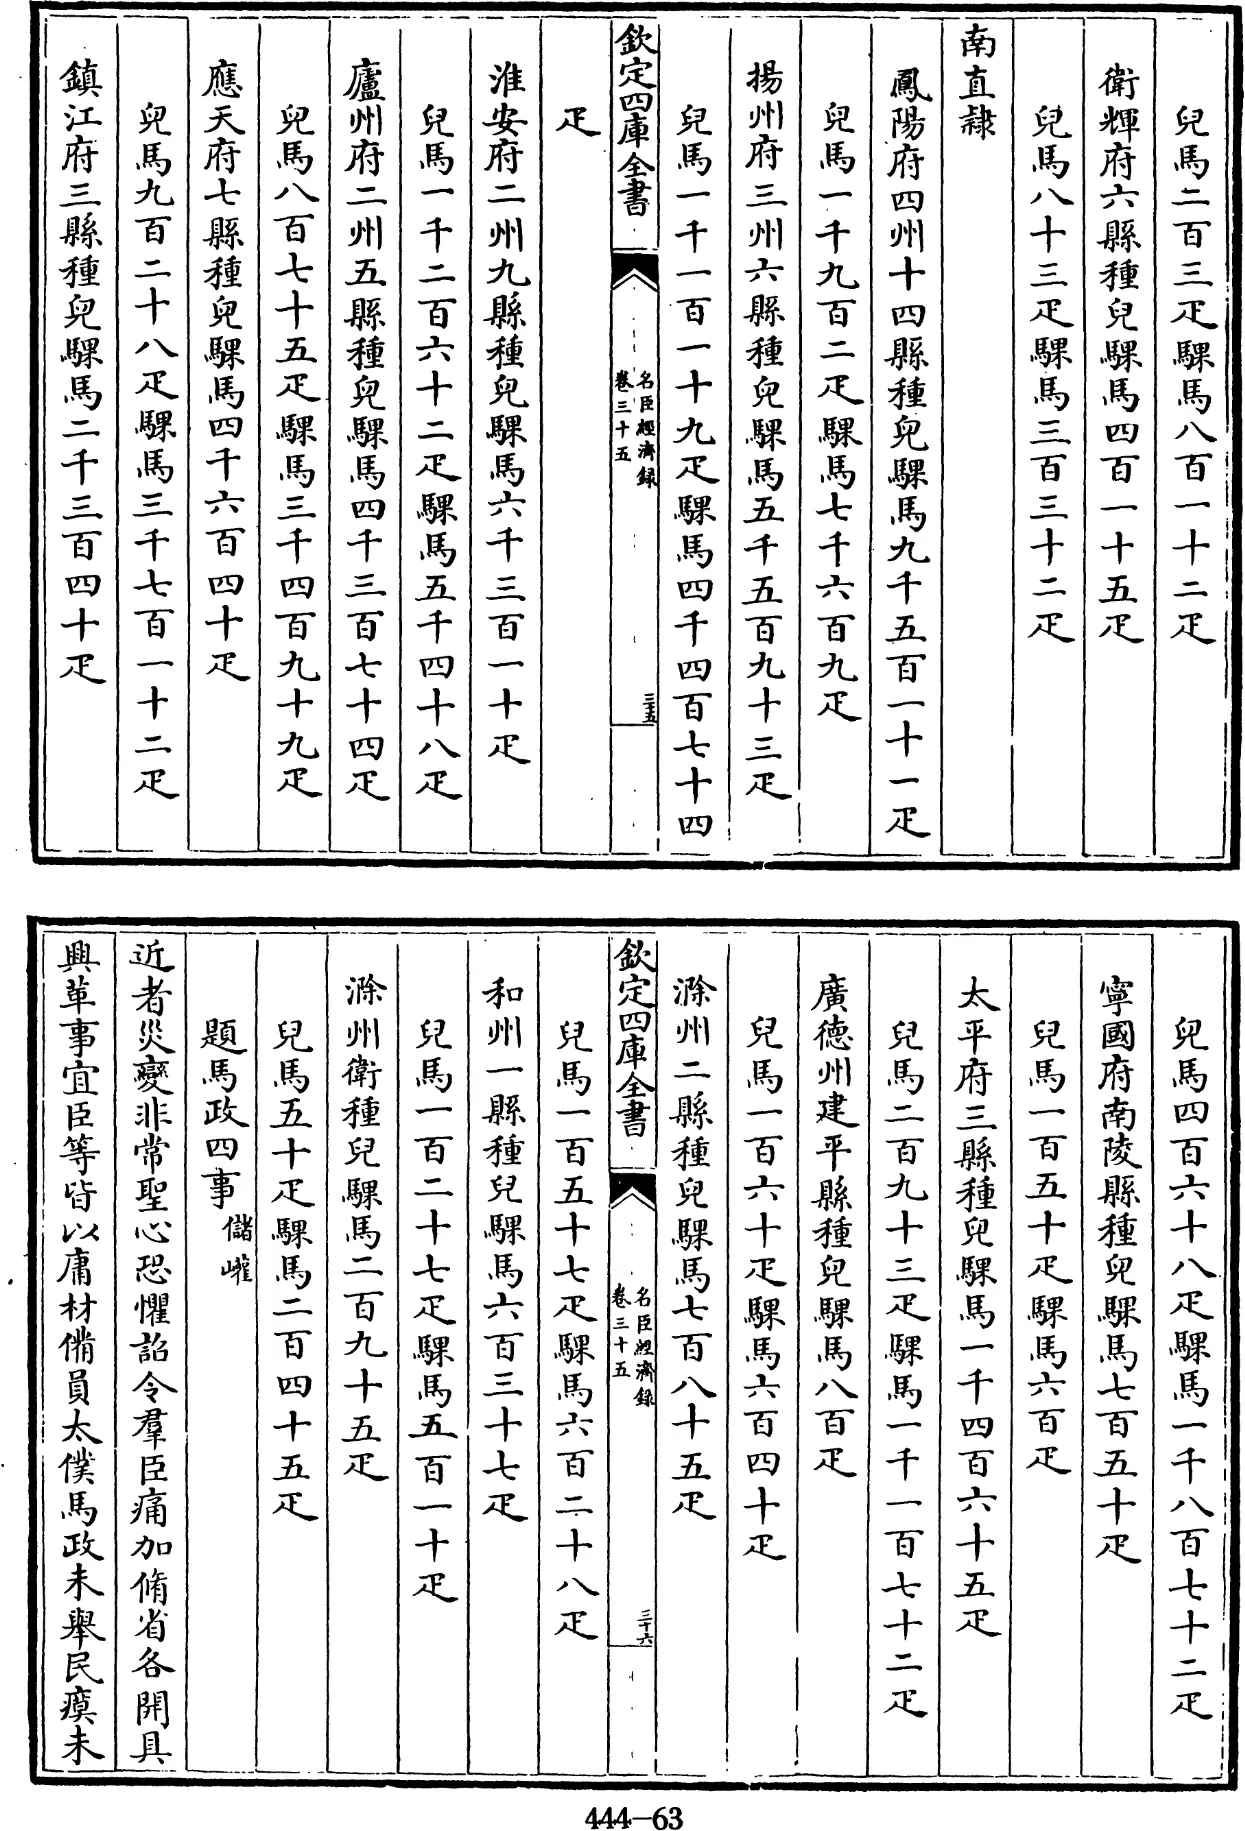 兒馬二百三疋騍馬八百一十二疋
衛輝府六縣種兒騍馬四百一十五疋
兒馬八十三疋騍馬三百三十二疋
南直隸
鳳陽府四州十四縣種兒騍馬九千五百一十一疋
兒馬一千九百二疋騍馬七千六百九疋
揚州府三州六縣種兒騍馬五千五百九十三疋
兒馬一千一百一十九疋騍馬四千四百七十四
欽定四庫全書
名臣經濟録
卷三十五
三十五
疋
淮安府二州九縣種兒騍馬六千三百一十疋
兒馬一千二百六十二疋騍馬五千四十八疋
廬州府二州五縣種兒騍馬四千三百七十四疋
兒馬八百七十五疋騍馬三千四百九十九疋
應天府七縣種兒騍馬四千六百四十疋
兒馬九百二十八疋騍馬三千七百一十二疋
鎮江府三縣種兒騍馬二千三百四十疋
兒馬四百六十八疋騍馬一千八百七十二疋
寧國府南陵縣種兒騍馬七百五十疋
兒馬一百五十疋騍馬六百疋
太平府三縣種兒騍馬一千四百六十五疋
兒馬二百九十三疋騍馬一千一百七十二疋
廣德州建平縣種兒騍馬八百疋
兒馬一百六十疋騍馬六百四十疋
滁州二縣種兒騍馬七百八十五疋
欽定四庫全書
名臣經濟録
卷三十五
三十六
兒馬一百五十七疋騍馬六百二十八疋
和州一縣種兒騍馬六百三十七疋
兒馬一百二十七疋騍馬五百一十疋
滁州衛種兒騍馬二百九十五疋
兒馬五十疋騍馬二百四十五疋
題馬政四事儲巏
近者災變非常聖心恐懼詔令羣臣痛加脩省各開具
興革事宜臣等皆以庸材備員太僕馬政未舉民瘼未
444-63